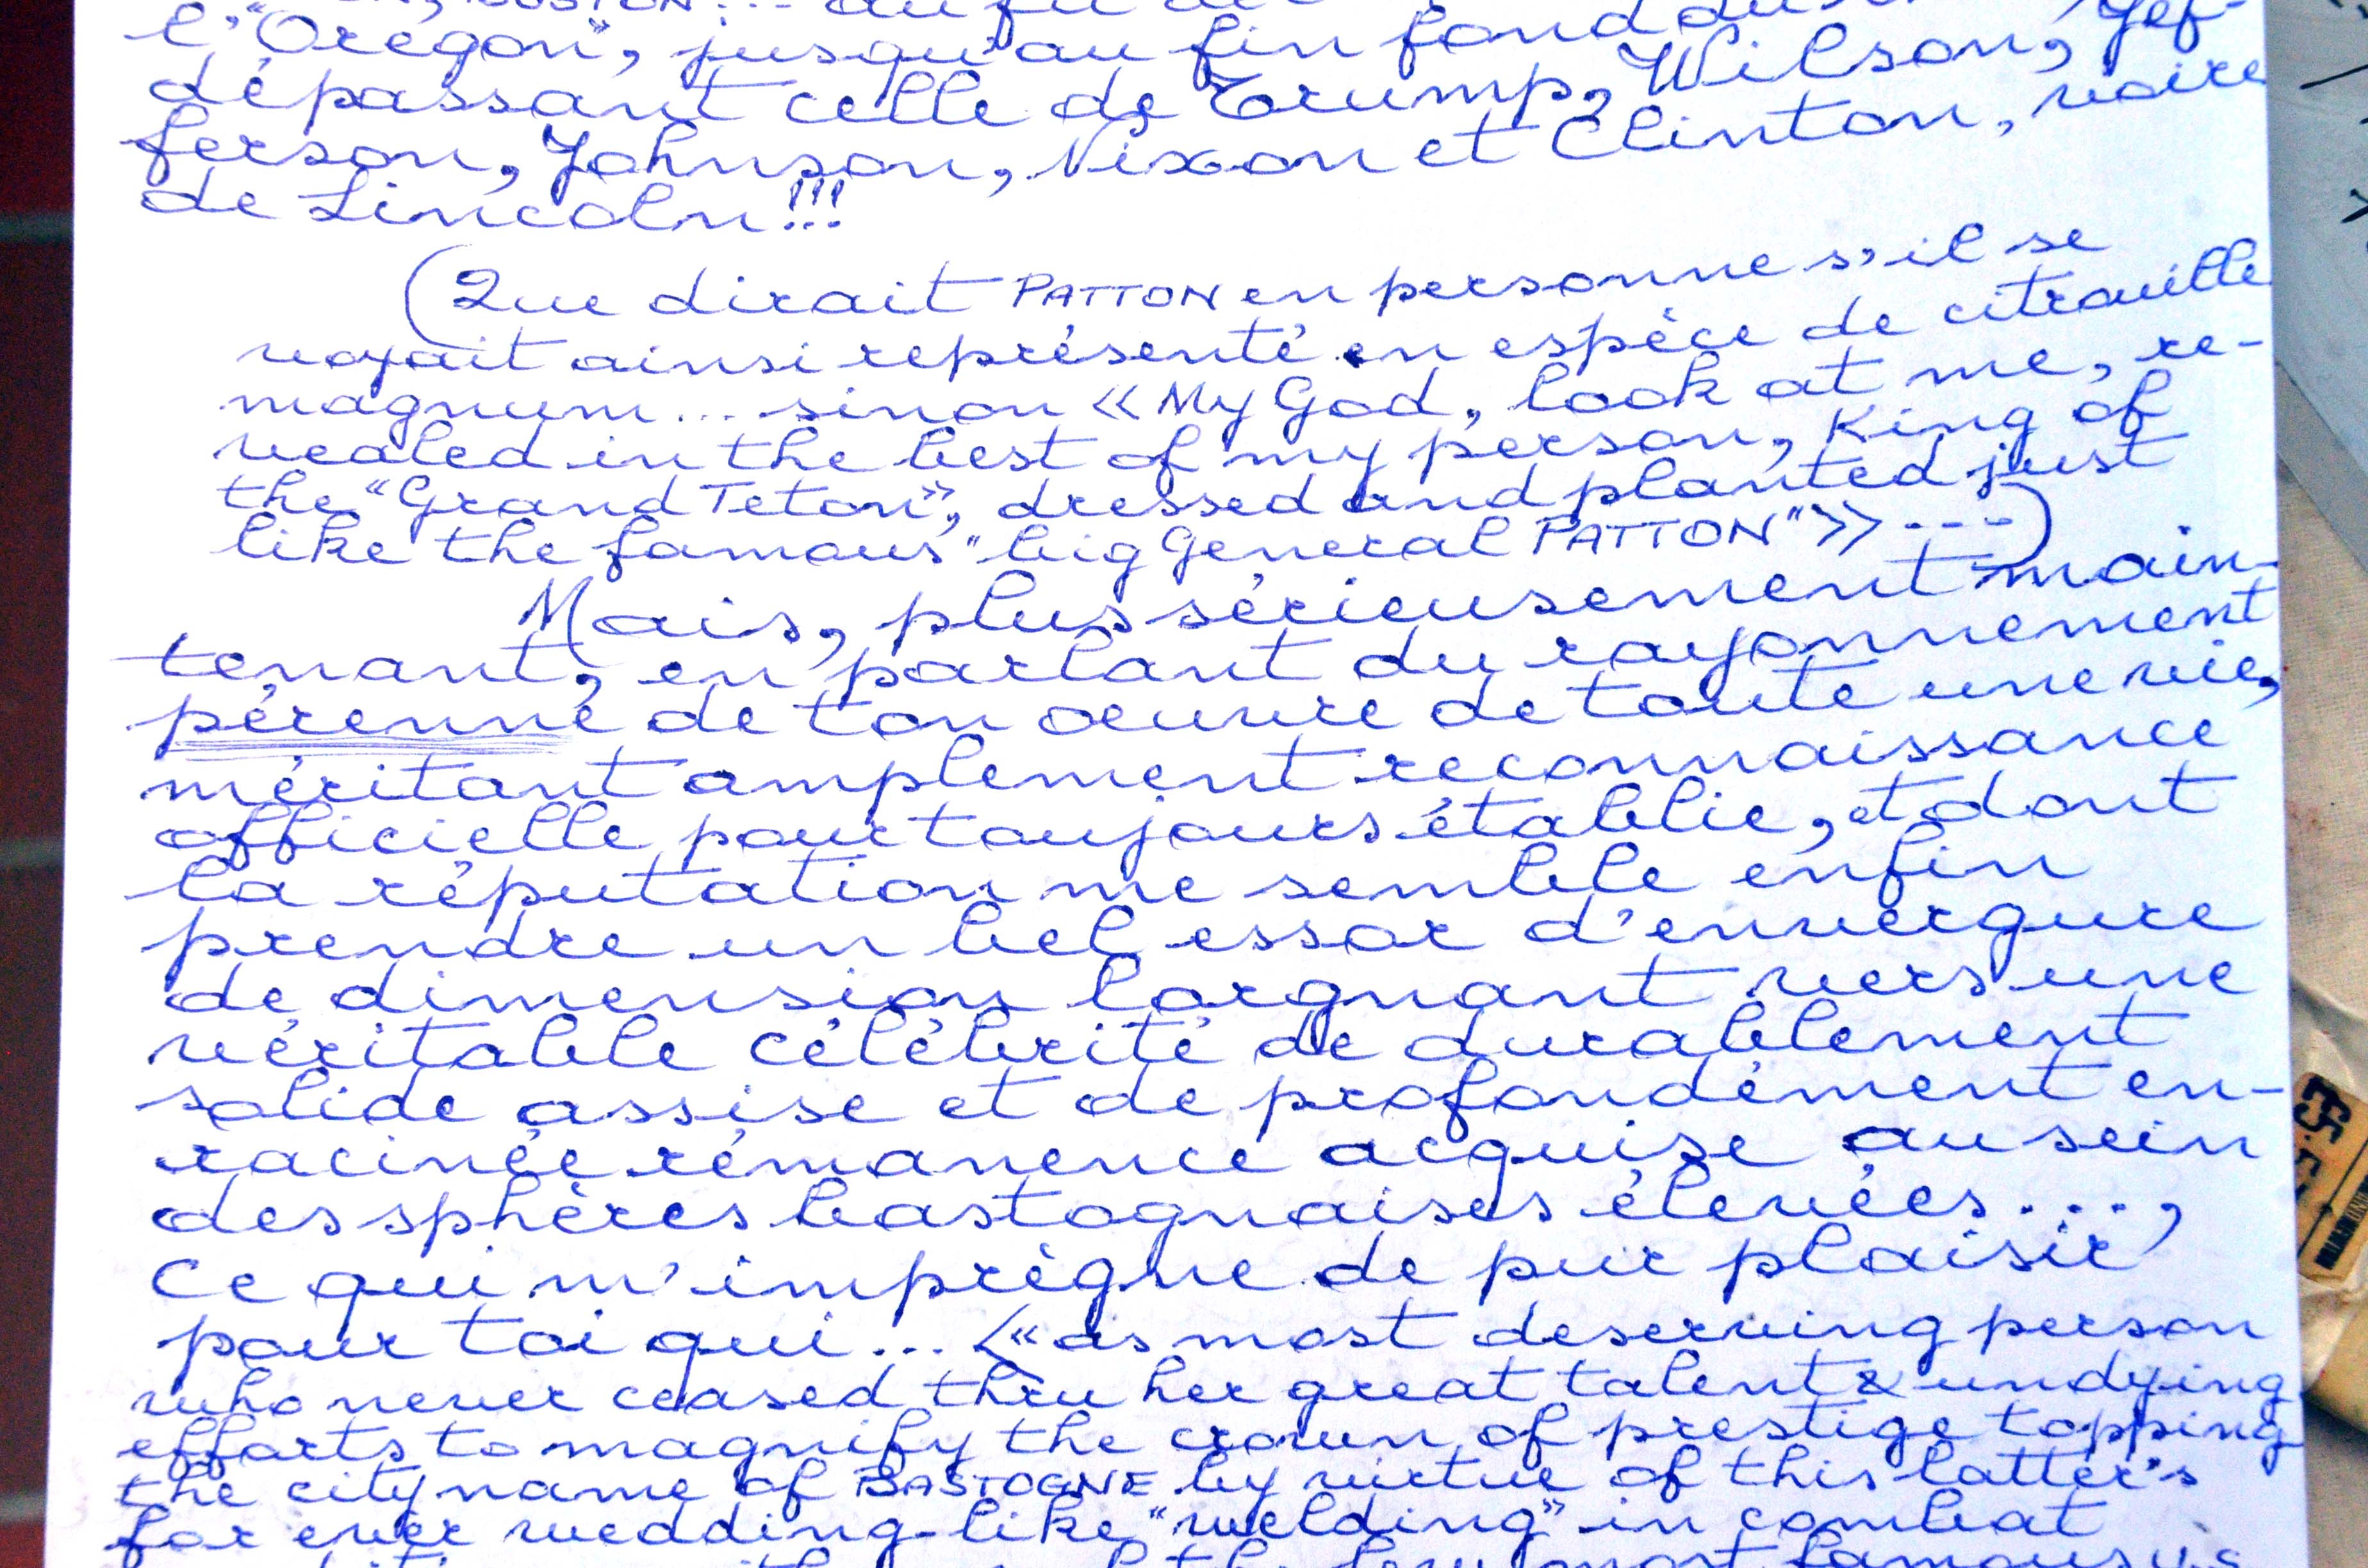 BOSTON... au fil de
l'"Oregon", jusqu'au fin fond du
dépassant celle de Trump, Wilson, Jef-
ferson, Johnson, Nixon et Clinton, voire
de Lincoln!!!
(Que dirait PATTON en personne s'il se
voyait ainsi représenté en espèce de citrouille
magnum... sinon «My God, look at me, re-
vealed in the best of my person, King of
the "Grand Teton", dressed and planted just
like the famous "big General PATTON"»----)
Mais, plus sérieusement main-
tenant, en parlant du rayonnement
pérenne de ton oeuvre de toute une vie,
méritant amplement reconnaissance
officielle pour toujours établie, et dont
la réputation me semble enfin
prendre un bel essor d'envergure
de dimension lorgnant vers une
véritable célébrité de durablement
solide assise et de profondément en-
racinée rémanence acquise au sein
des sphères bastognaises élevées...,
Ce qui m'imprègne de pur plaisir
pour toi qui... «as most deserving person
who never ceased thru her great talent & undying
efforts to magnify the crown of prestige topping
the city name of BASTOGNE by virtue of this latter's
for ever wedding-like "welding" in combat